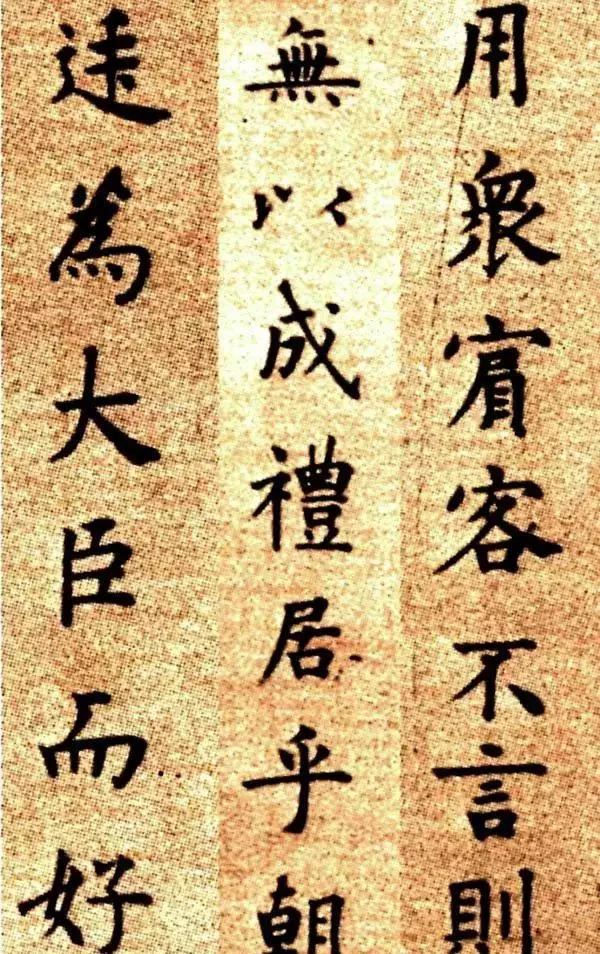 用衆賓客不言則
無以成禮居乎朝
廷為大臣而好